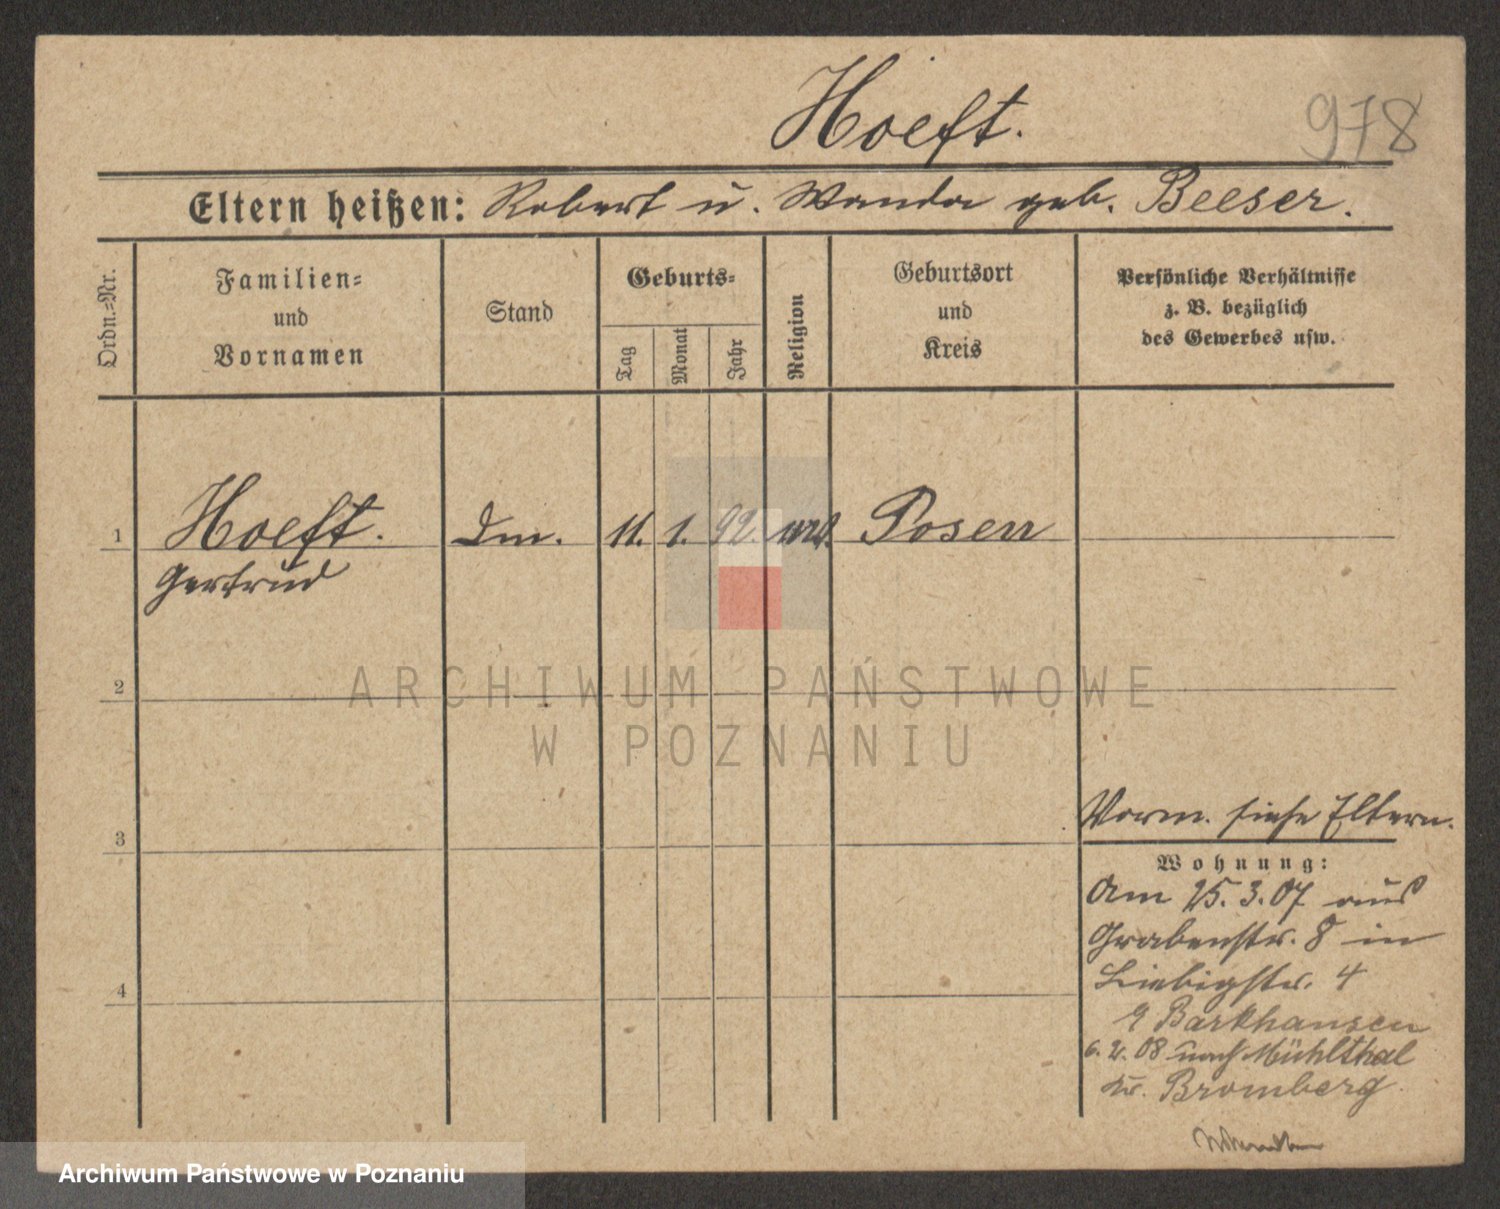 Hoeft.
978
Eltern heißen: Robert u. Wanda geb. Beeser.
Ordn.=Nr.
Familien=
und
Vornamen
Stand
Geburts=
Tag
Monat
Jahr
Religion
Geburtsort
und
Kreis
Persönliche Verhältnisse
z. B. bezüglich
des Gewerbes usw.
1
Hoeft. 11. 1. 92. Posen
Gertrud
2
ARCHIWUM PAŃSTWOWE
W POZNANIU
3
Vorm. siehe Eltern.
Wohnung:
Am 25. 3. 07 aus
Grabenstr. 8 in
Liebigstr. 4
Barkhausen
4
08 nach Mühlthal
Kr. Bromberg
Archiwum Państwowe w Poznaniu